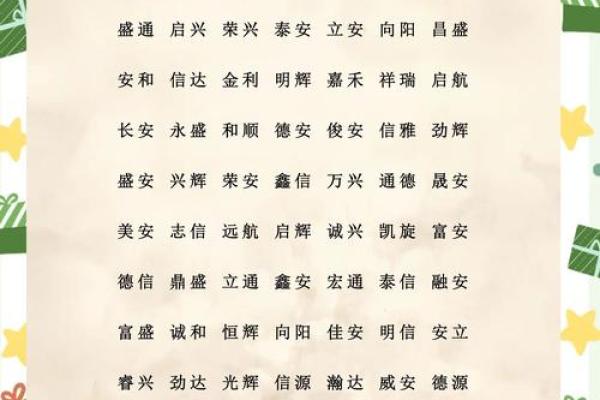 盛通 启兴 荣兴 泰安 立安 向阳 昌盛
安和 信达 金利 明辉 嘉禾 祥瑞 启航
长安 永盛 和顺 德安 俊安 信雅 劲辉
盛安 兴辉 荣安 鑫信 万兴 通德 晟安
美安 志信 远航 启辉 诚兴 凯旋 富安
德信 鼎盛 立通 鑫安 宏通 泰信 融安
富盛 诚和 恒辉 向阳 佳安 明信 安立
睿兴 劲达 光辉 信源 瀚达 威安 德源